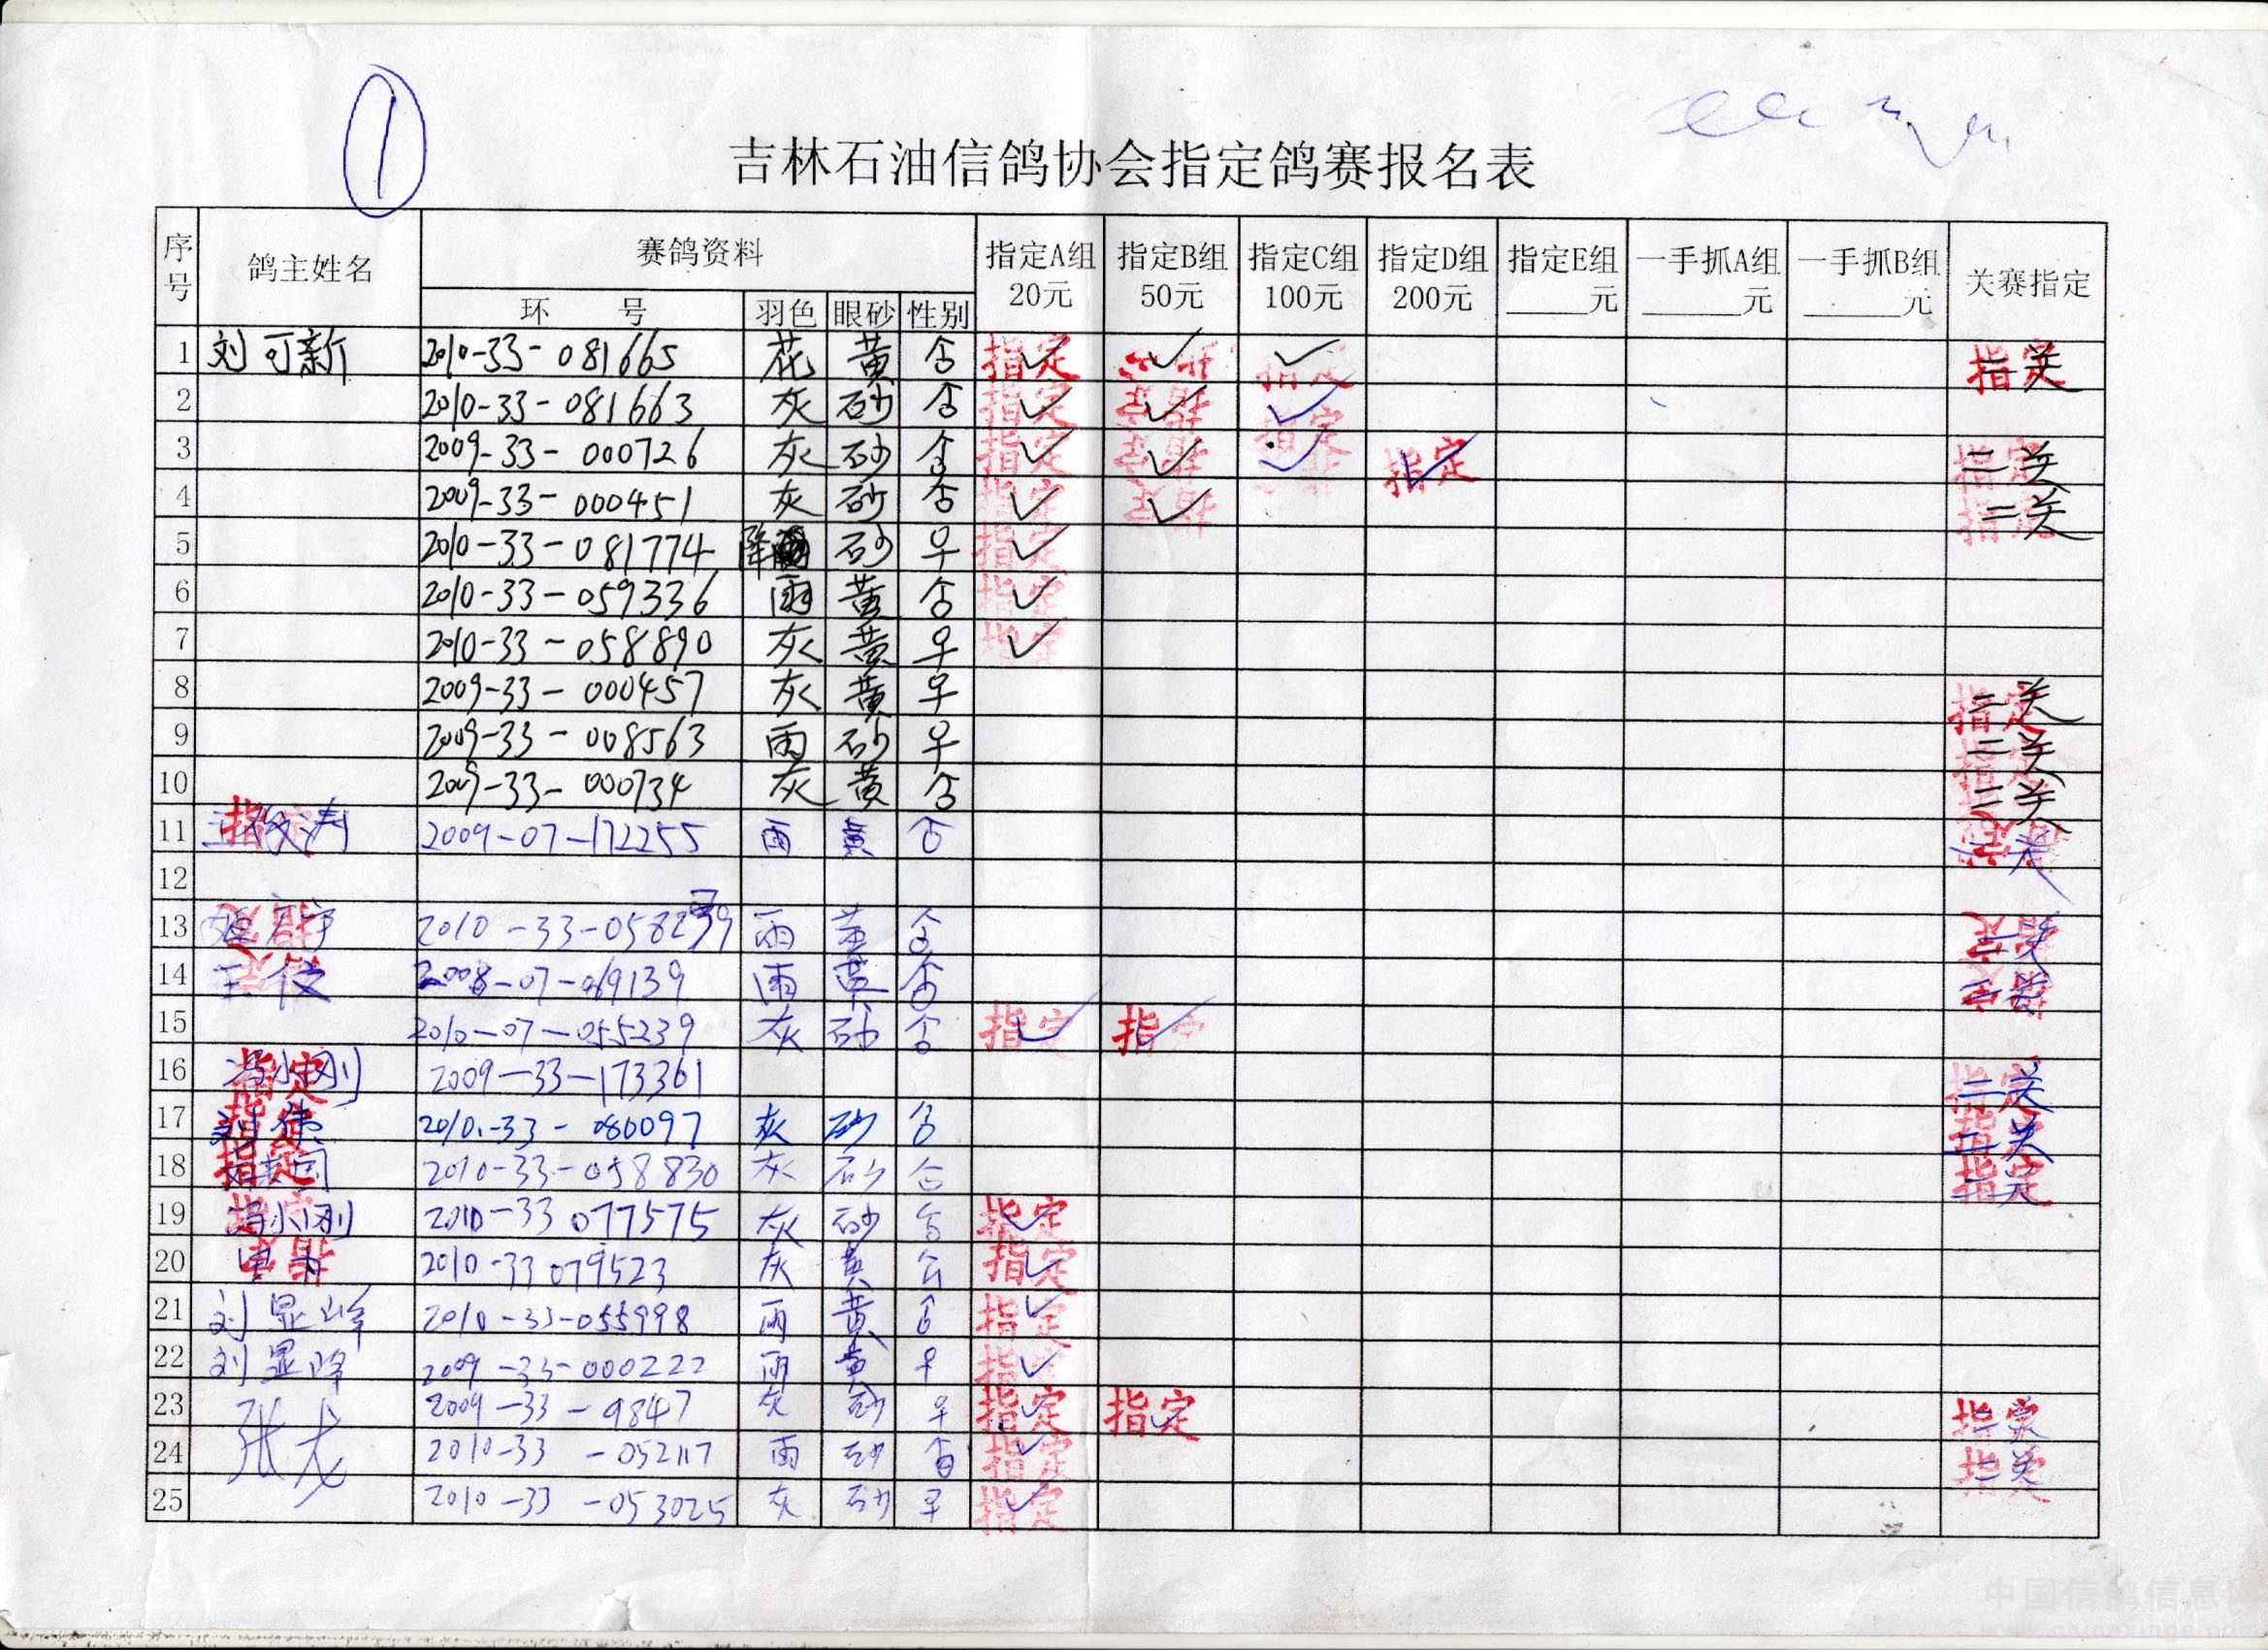 1
吉林石油信鸽协会指定鸽赛报名表
序号 鸽主姓名 赛鸽资料 指定A组 20元 指定B组 50元 指定C组 100元 指定D组 200元 指定E组 _____元 一手抓A组 ______元 一手抓B组 ______元 关赛指定
环 号 羽色 眼砂 性别
1 刘可新 2010-33-081665 花 黄 指定 ✓ ✓ 指定 ✓ 指定
2 2010-33-081663 灰 砂 指定 ✓ ✓ 指定 ✓
3 2009-33-000726 灰 砂 指定 ✓ ✓ ✓ 指定 ✓ 指定 二关
4 2009-33-000451 灰 砂 指定 ✓ ✓ 指定 二关
5 2010-33-081774 降 砂 指定 ✓
6 2010-33-059336 雨 黄 指定 ✓
7 2010-33-058890 灰 黄 指定 ✓
8 2009-33-000457 灰 黄 指定 二关
9 2009-33-008563 雨 砂 指定 二关
10 2009-33-000734 灰 黄 二关
11 2009-07-172255 雨 黄
12
13 2010-33-058239 雨 黄
14 2008-07-069139 雨 黄
15 2010-07-055239 灰 砂 指定 ✓ 指定 ✓
16 冯小刚 指定 2009-33-173361 指定 二关
17 刘伟 2010-33-080097 灰 砂 指定 二关
18 指定 2010-33-058830 灰 砂 指定
19 冯小刚 2010-33 077575 灰 砂 指定 ✓
20 2010-33 079523 灰 黄 指定 ✓
21 刘显峰 2010-33-055998 雨 黄 指定 ✓
22 刘显峰 2009-33-000222 雨 黄 指定 ✓
23 张龙 2009-33-9847 灰 砂 指定 ✓ 指定 ✓ 指定
24 2010-33 -052117 雨 砂 指定 ✓ 指定 二关
25 2010-33 -053025 灰 砂 指定 ✓
中国信鸽信息网
www.chinaxinge.com